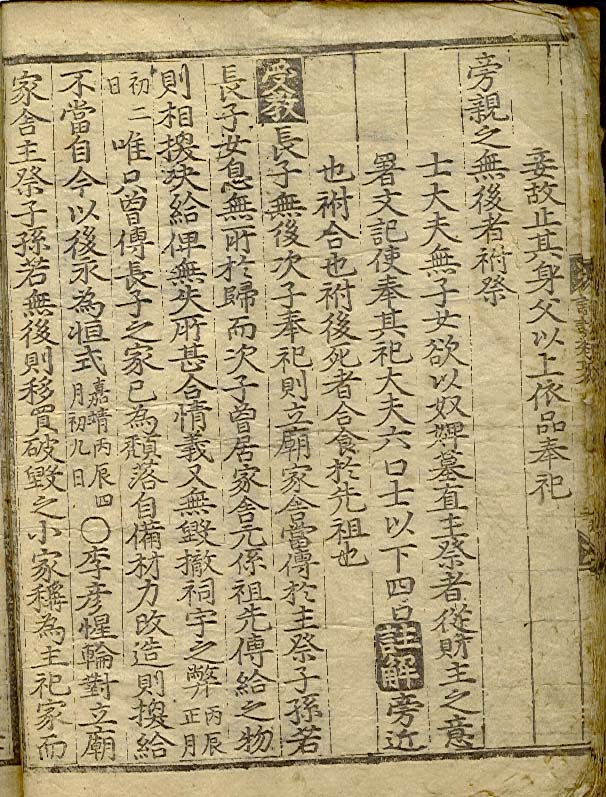 妾故止其身父以上依品奉祀
旁親之無後者祔祭
士大夫無子女欲以奴婢墓直主祭者從財主之意
署文記使奉其祀大夫六口士以下四口註解旁近
也祔合也祔後死者合食於先祖也
受教長子無後次子奉祀則立廟家舍當傳於主祭子孫若
長子女息無所於歸而次子曾居家舍元係祖先傳給之物
則相換決給俾無失所甚合情義又無毀撤祠宇之弊丙辰正月
初二日唯只曾傳長子之家已為頹落自備材力改造則換給
不當自今以後永為恒式嘉靖丙辰四月初九日○李彥惺輪對立廟
家舍主祭子孫若無後則移買破毀之小家稱為主祀家而